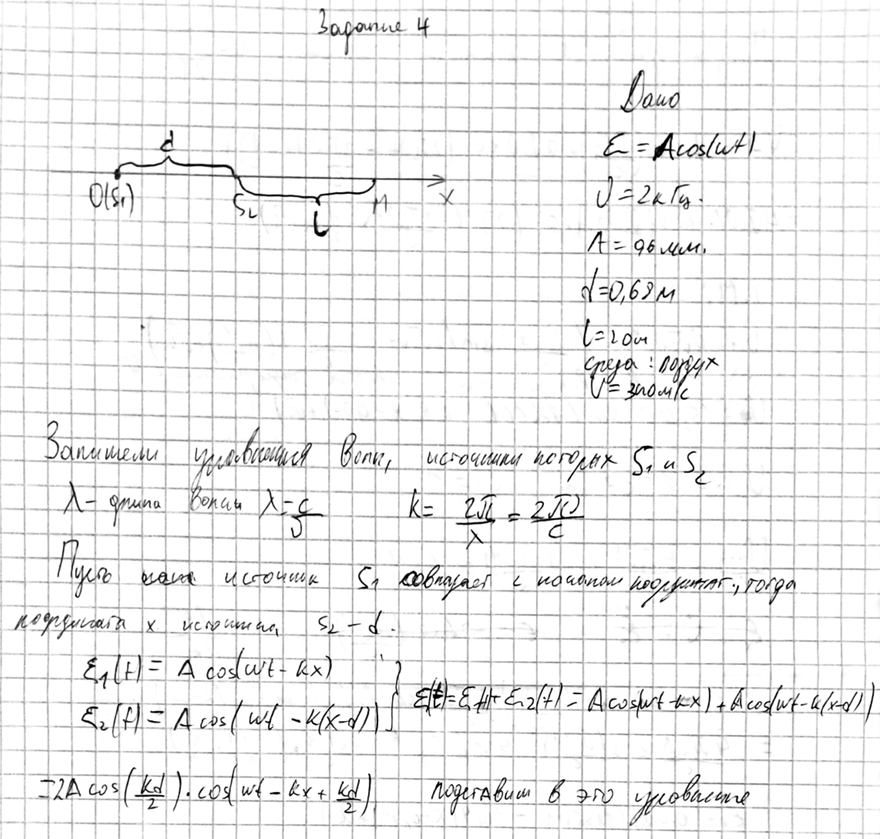 Задание 4
Дано
d
O(S₁) S₂ M X
l
ξ = A cos(ωt)
ν = 2 кГц.
A = 0,6 мм.
d = 0,68 м
l = 20 м
среда: воздух
υ = 340 м/с
Запишем уравнения волн, источники которых S₁ и S₂
λ – длина волны λ = c/ν k = 2π/λ = 2πν/c
Пусть источник S₁ совпадает с началом координат, тогда
координата x источника S₂ – d.
ξ₁(t) = A cos(ωt – kx)
ξ₂(t) = A cos(ωt – k(x–d)) } ξ(t) = ξ₁(t) + ξ₂(t) = A cos(ωt – kx) + A cos(ωt – k(x–d))
= 2A cos(kd/2) · cos(ωt – kx + kd/2) подставим в это уравнение